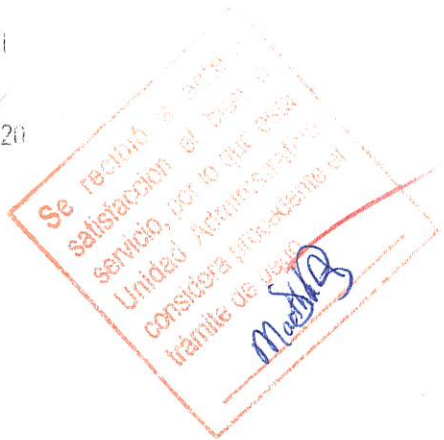 20
Se recibió a entera
satisfacción el bien o
servicio, por lo que esta
Unidad Administrativa
considera procedente el
trámite de pago